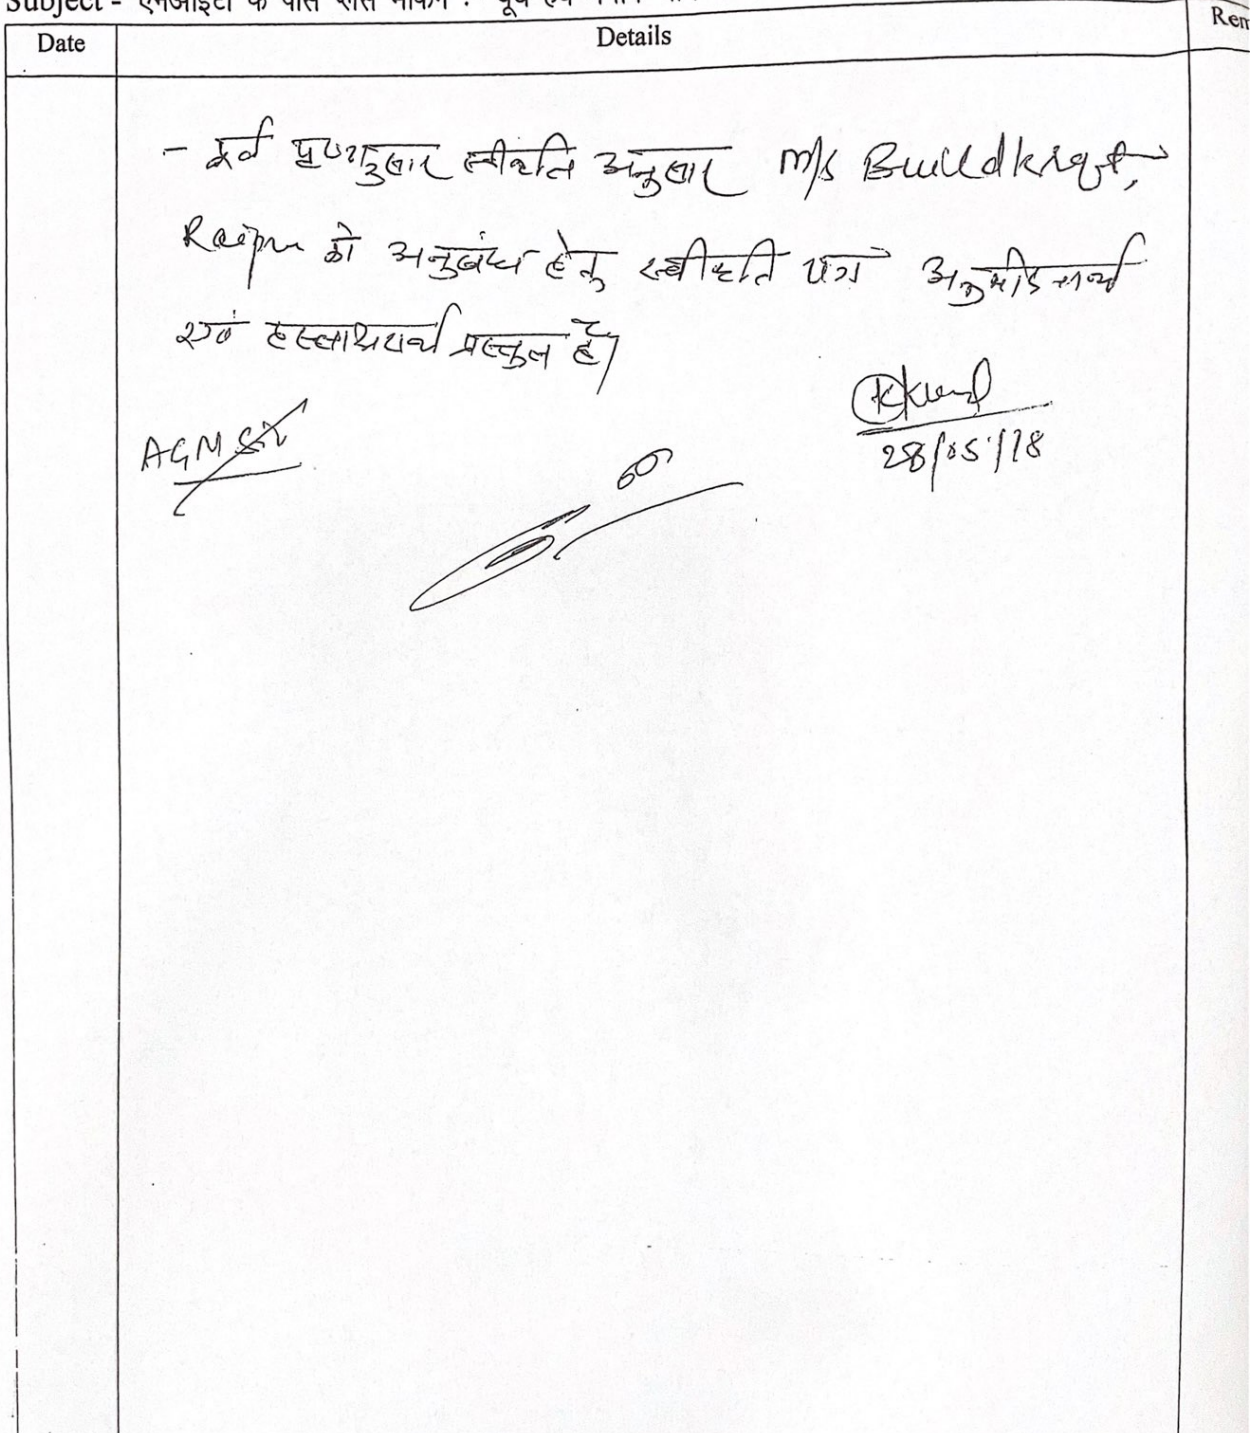 Subject - एनआईटी के पास
Date Details Rem
- पूर्व पृष्ठानुसार स्वीकृति अनुसार M/s Buildkraft,
Raipur को अनुबंध हेतु स्वीकृति पत्र अनुमोदनार्थ
एवं हस्ताक्षरार्थ प्रस्तुत है।
AGM
28/05/18